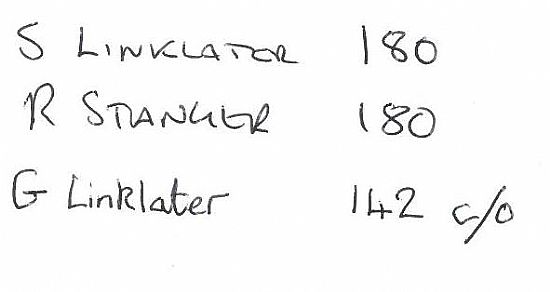 S LINKLATOR 180
R STANGER 180
G Linklater 142 c/o